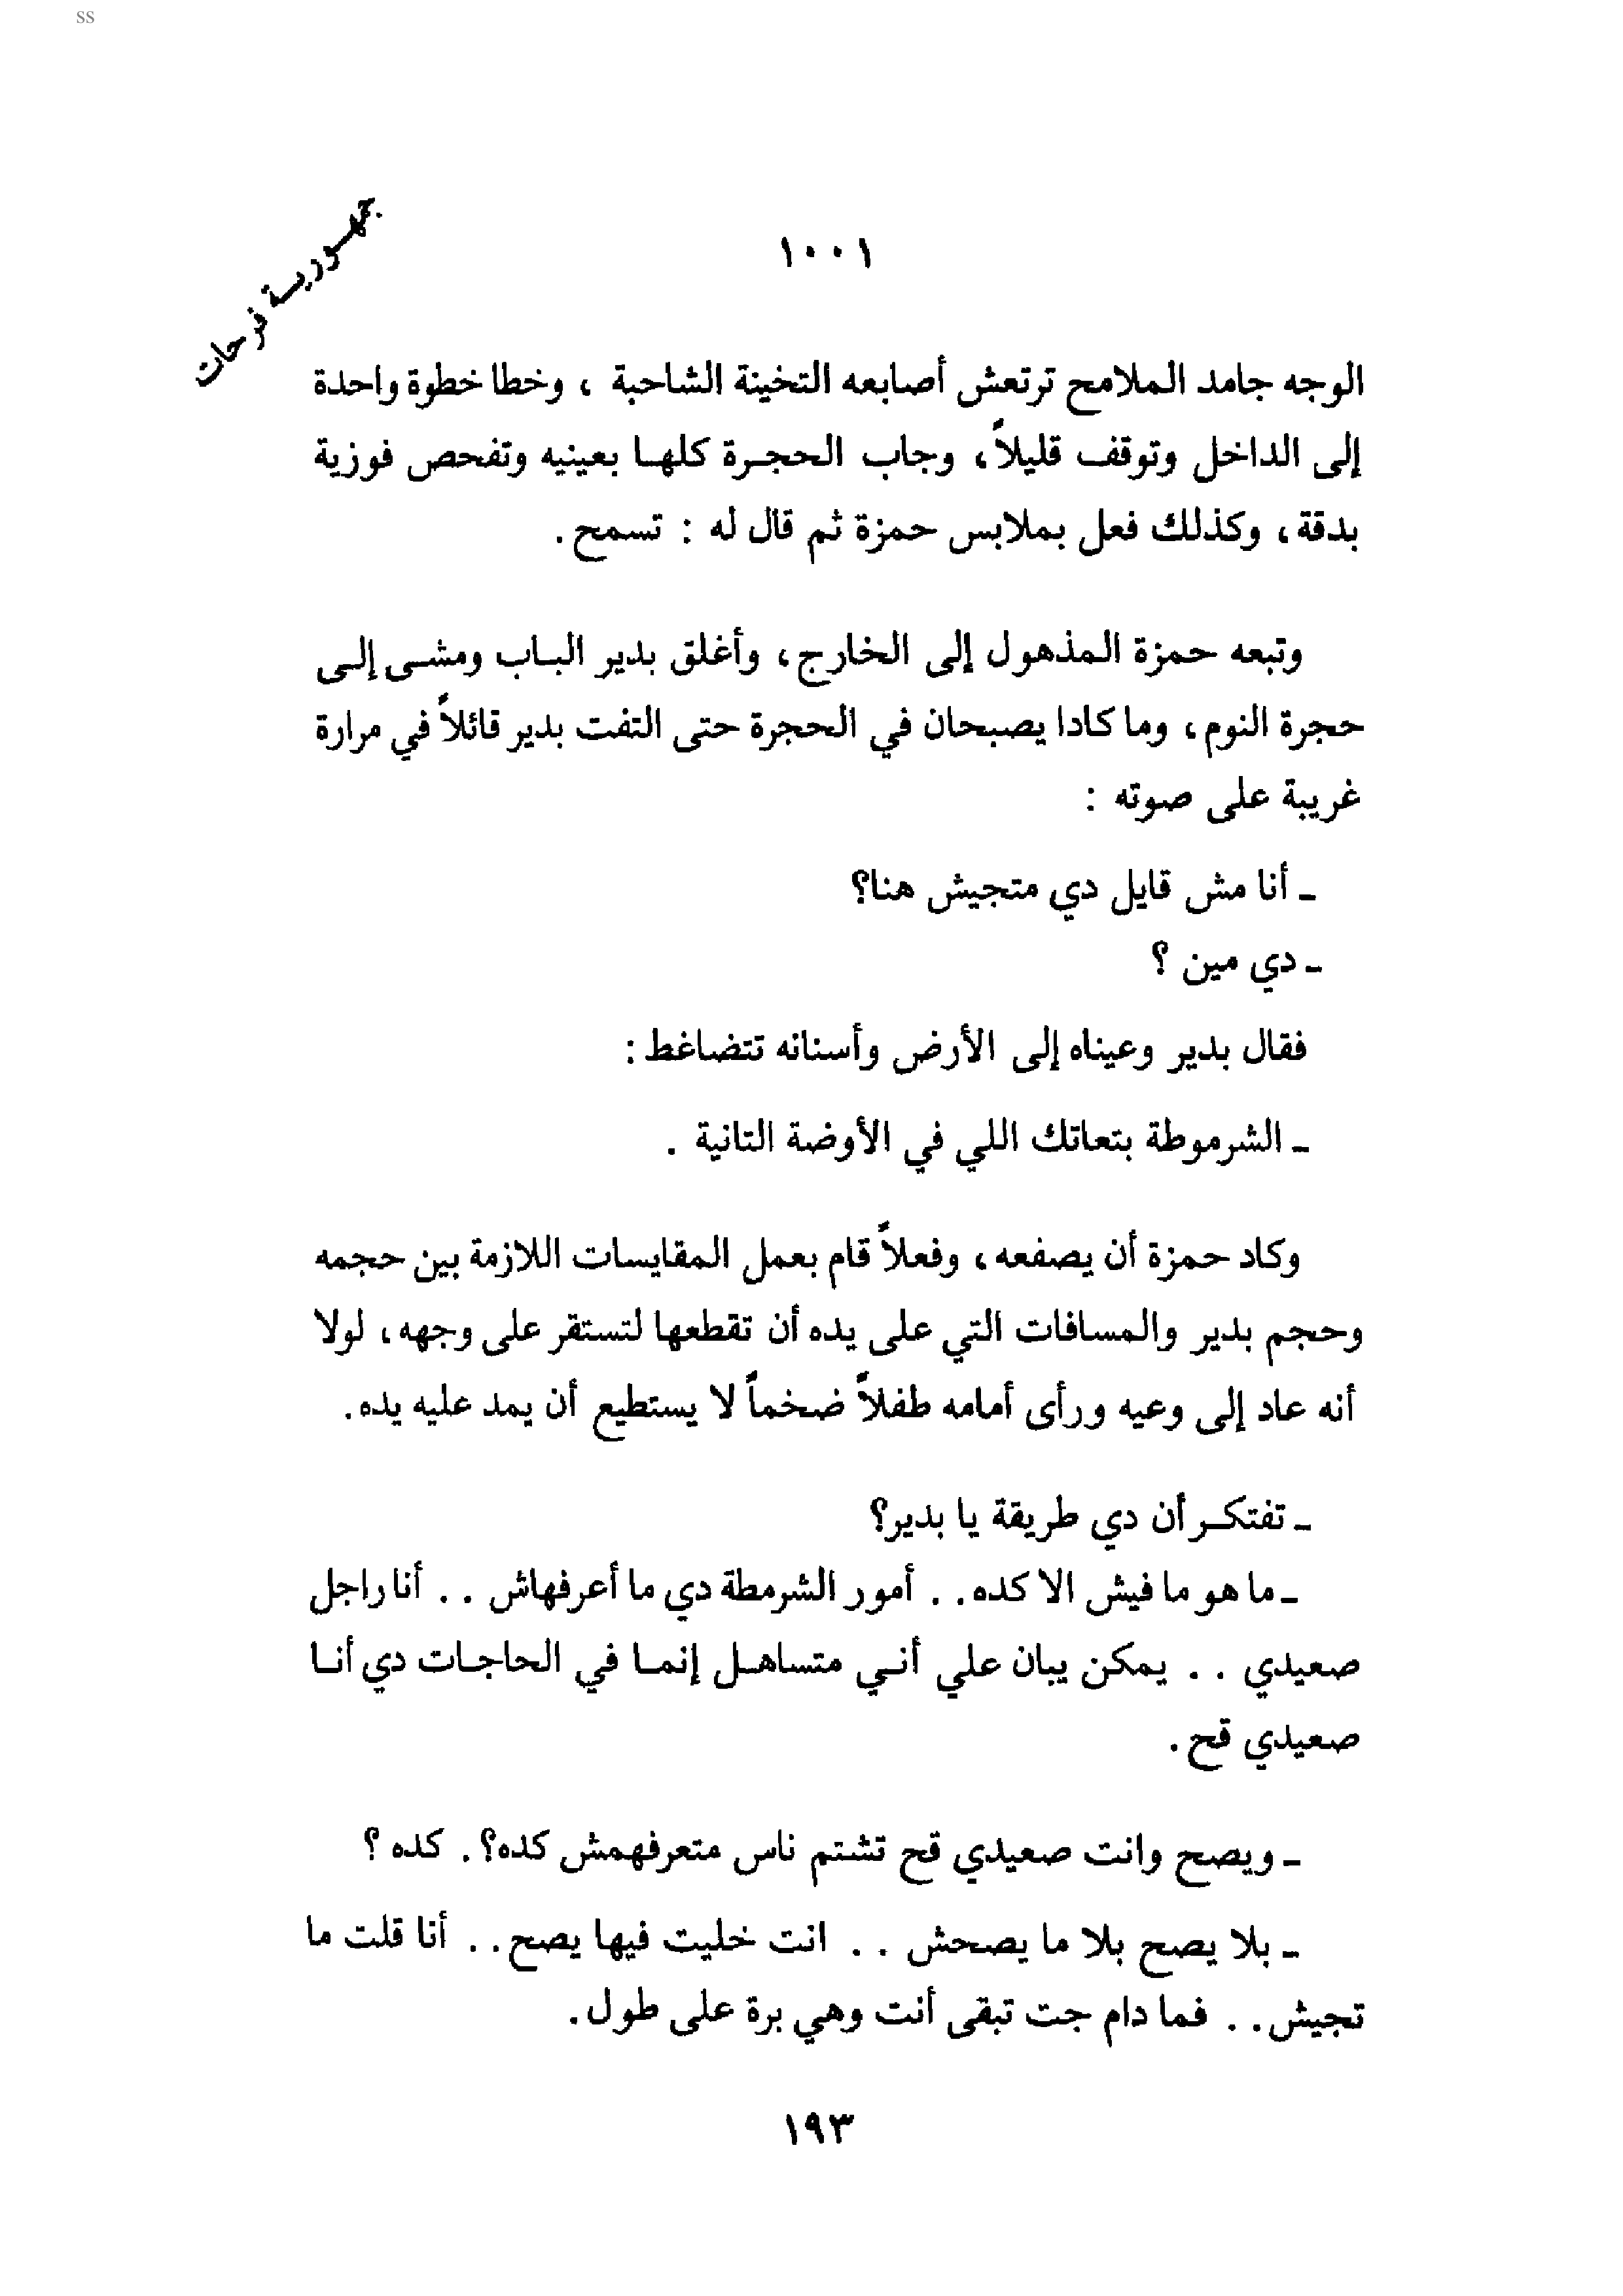 ss
جمهورية فرحات
١٠٠١
الوجه جامد الملامح ترتعش أصابعه التخينة الشاحبة ، وخطا خطوة واحدة
إلى الداخل وتوقف قليلاً، وجاب الحجرة كلها بعينيه وتفحص فوزية
بدقة، وكذلك فعل بملابس حمزة ثم قال له : تسمح.
وتبعه حمزة المذهول إلى الخارج، وأغلق بدير الباب ومشى إلى
حجرة النوم، وما كادا يصبحان في الحجرة حتى التفت بدير قائلاً في مرارة
غريبة على صوته :
ـ أنا مش قايل دي متجيش هنا؟
ـ دي مين ؟
فقال بدير وعيناه إلى الأرض وأسنانه تتضاغط:
ـ الشرموطة بتعاتك اللي في الأوضة التانية .
وكاد حمزة أن يصفعه، وفعلاً قام بعمل المقايسات اللازمة بين حجمه
وحجم بدير والمسافات التي على يده أن تقطعها لتستقر على وجهه، لولا
أنه عاد إلى وعيه ورأى أمامه طفلاً ضخماً لا يستطيع أن يمد عليه يده.
ـ تفتكر أن دي طريقة يا بدير؟
ـ ما هو ما فيش الا كده. . أمور الشرمطة دي ما أعرفهاش . . أنا راجل
صعيدي . . يمكن يبان علي أني متساهل إنما في الحاجات دي أنا
صعيدي قح.
ـ ويصح وانت صعيدي قح تشتم ناس متعرفهمش كده؟. كده ؟
ـ بلا يصح بلا ما يصحش . . انت خليت فيها يصح. . أنا قلت ما
تجيش. . فما دام جت تبقى أنت وهي برة على طول.
١٩٣